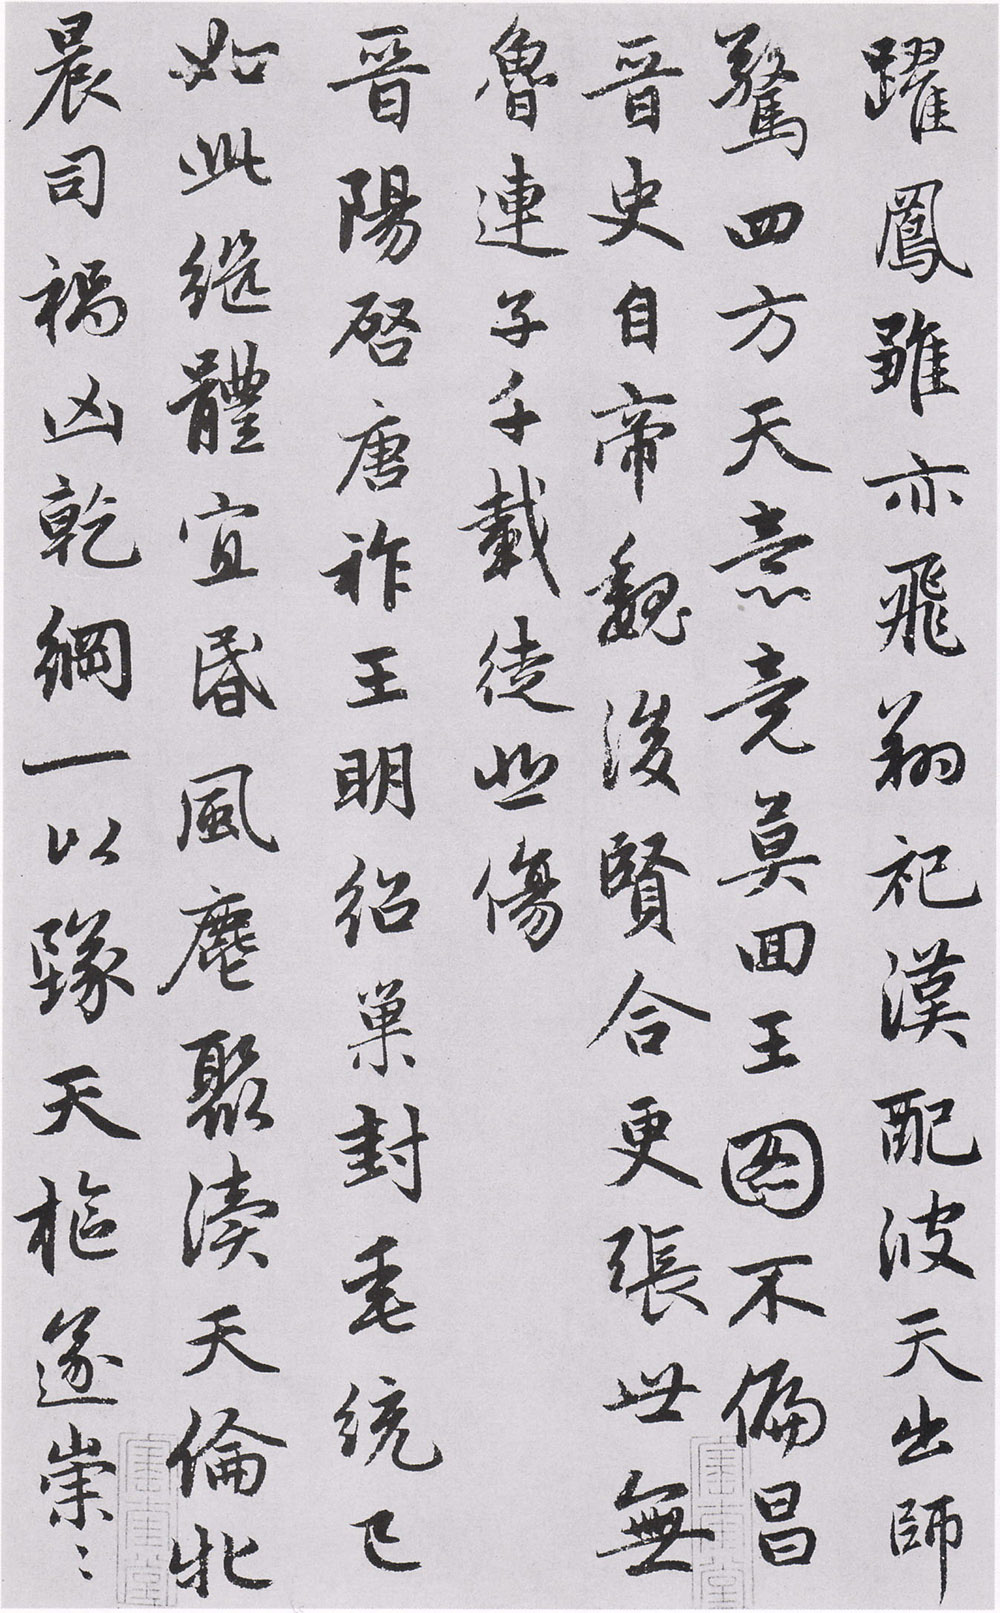 躍鳳雛亦飛翔祀漢配彼天出師
驚四方天意竟莫囬王圖不偏昌
晉史自帝魏後賢合更張世無
魯連子千載徒悲傷
晉陽啓唐祚王明紹巢封垂統已
如此継體宜昏風麀聚瀆天倫牝
晨司禍凶乾綱一以墜天樞遂崇〻